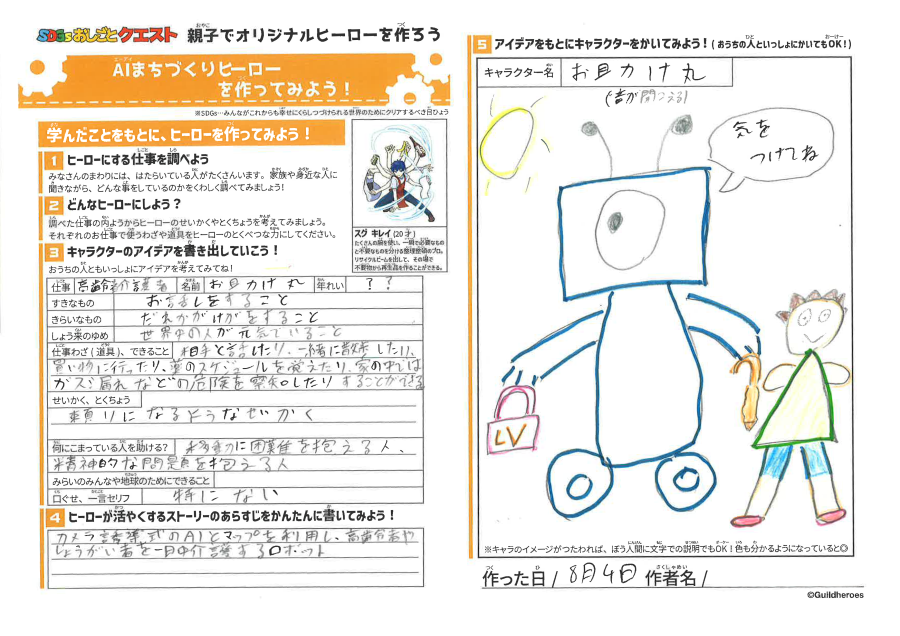 SDGsおしごとクエスト 親子でオリジナルヒーローを作ろう
AIまちづくりヒーロー
を作ってみよう！
※SDGs…みんながこれからも幸せにくらしつづけられる世界のためにクリアするべき目ひょう
学んだことをもとに、ヒーローを作ってみよう！
1 ヒーローにする仕事を調べよう
みなさんのまわりには、はたらいている人がたくさんいます。家族や身近な人に
聞きながら、どんな事をしているのかをくわしく調べてみましょう!
2 どんなヒーローにしよう？
調べた仕事の内ようからヒーローのせいかくやとくちょうを考えてみましょう。
それぞれのお仕事で使うわざや道具をヒーローのとくべつな力にしてください。
スグ キレイ(20才)
たくさんの腕を使い、一瞬で必要なもの
と不要なものを分ける整理整頓のプロ。
リサイクルビームを出して、その場で
不要物から再生品を作ることができる。
3 キャラクターのアイデアを書き出していこう！
おうちの人ともいっしょにアイデアを考えてみてね！
仕事 高齢者介護者 名前 お見力け丸 年れい ？？
すきなもの お話しをすること
きらいなもの だれかがけがをすること
しょう来のゆめ 世界中の人が元気でいること
仕事わざ(道具)、できること 相手と話したり、一緒に散歩したり、
買い物に行ったり、薬のスケジュールを覚えたり、家の中では
ガス漏れなどの危険を察知したりすることができる
せいかく、とくちょう
頼りになるようなせいかく
何にこまっている人を助ける? 移動に困難を抱える人、
精神的な問題を抱える人
みらいのみんなや地球のためにできること
口ぐせ、一言セリフ 特にない
4 ヒーローが活やくするストーリーのあらすじをかんたんに書いてみよう！
カメラ誘導式のAIとマップを利用し、高齢者や
しょうがい者を一日中介護するロボット
5 アイデアをもとにキャラクターをかいてみよう！(おうちの人といっしょにかいてもOK！)
キャラクター名 お見力け丸
(音が聞こえる)
気を
つけてね
LV
※キャラのイメージがつたわれば、ぼう人間に文字での説明でもOK！色も分かるようになっていると◎
作った日 / 8月4日 作者名 /
©Guildheroes